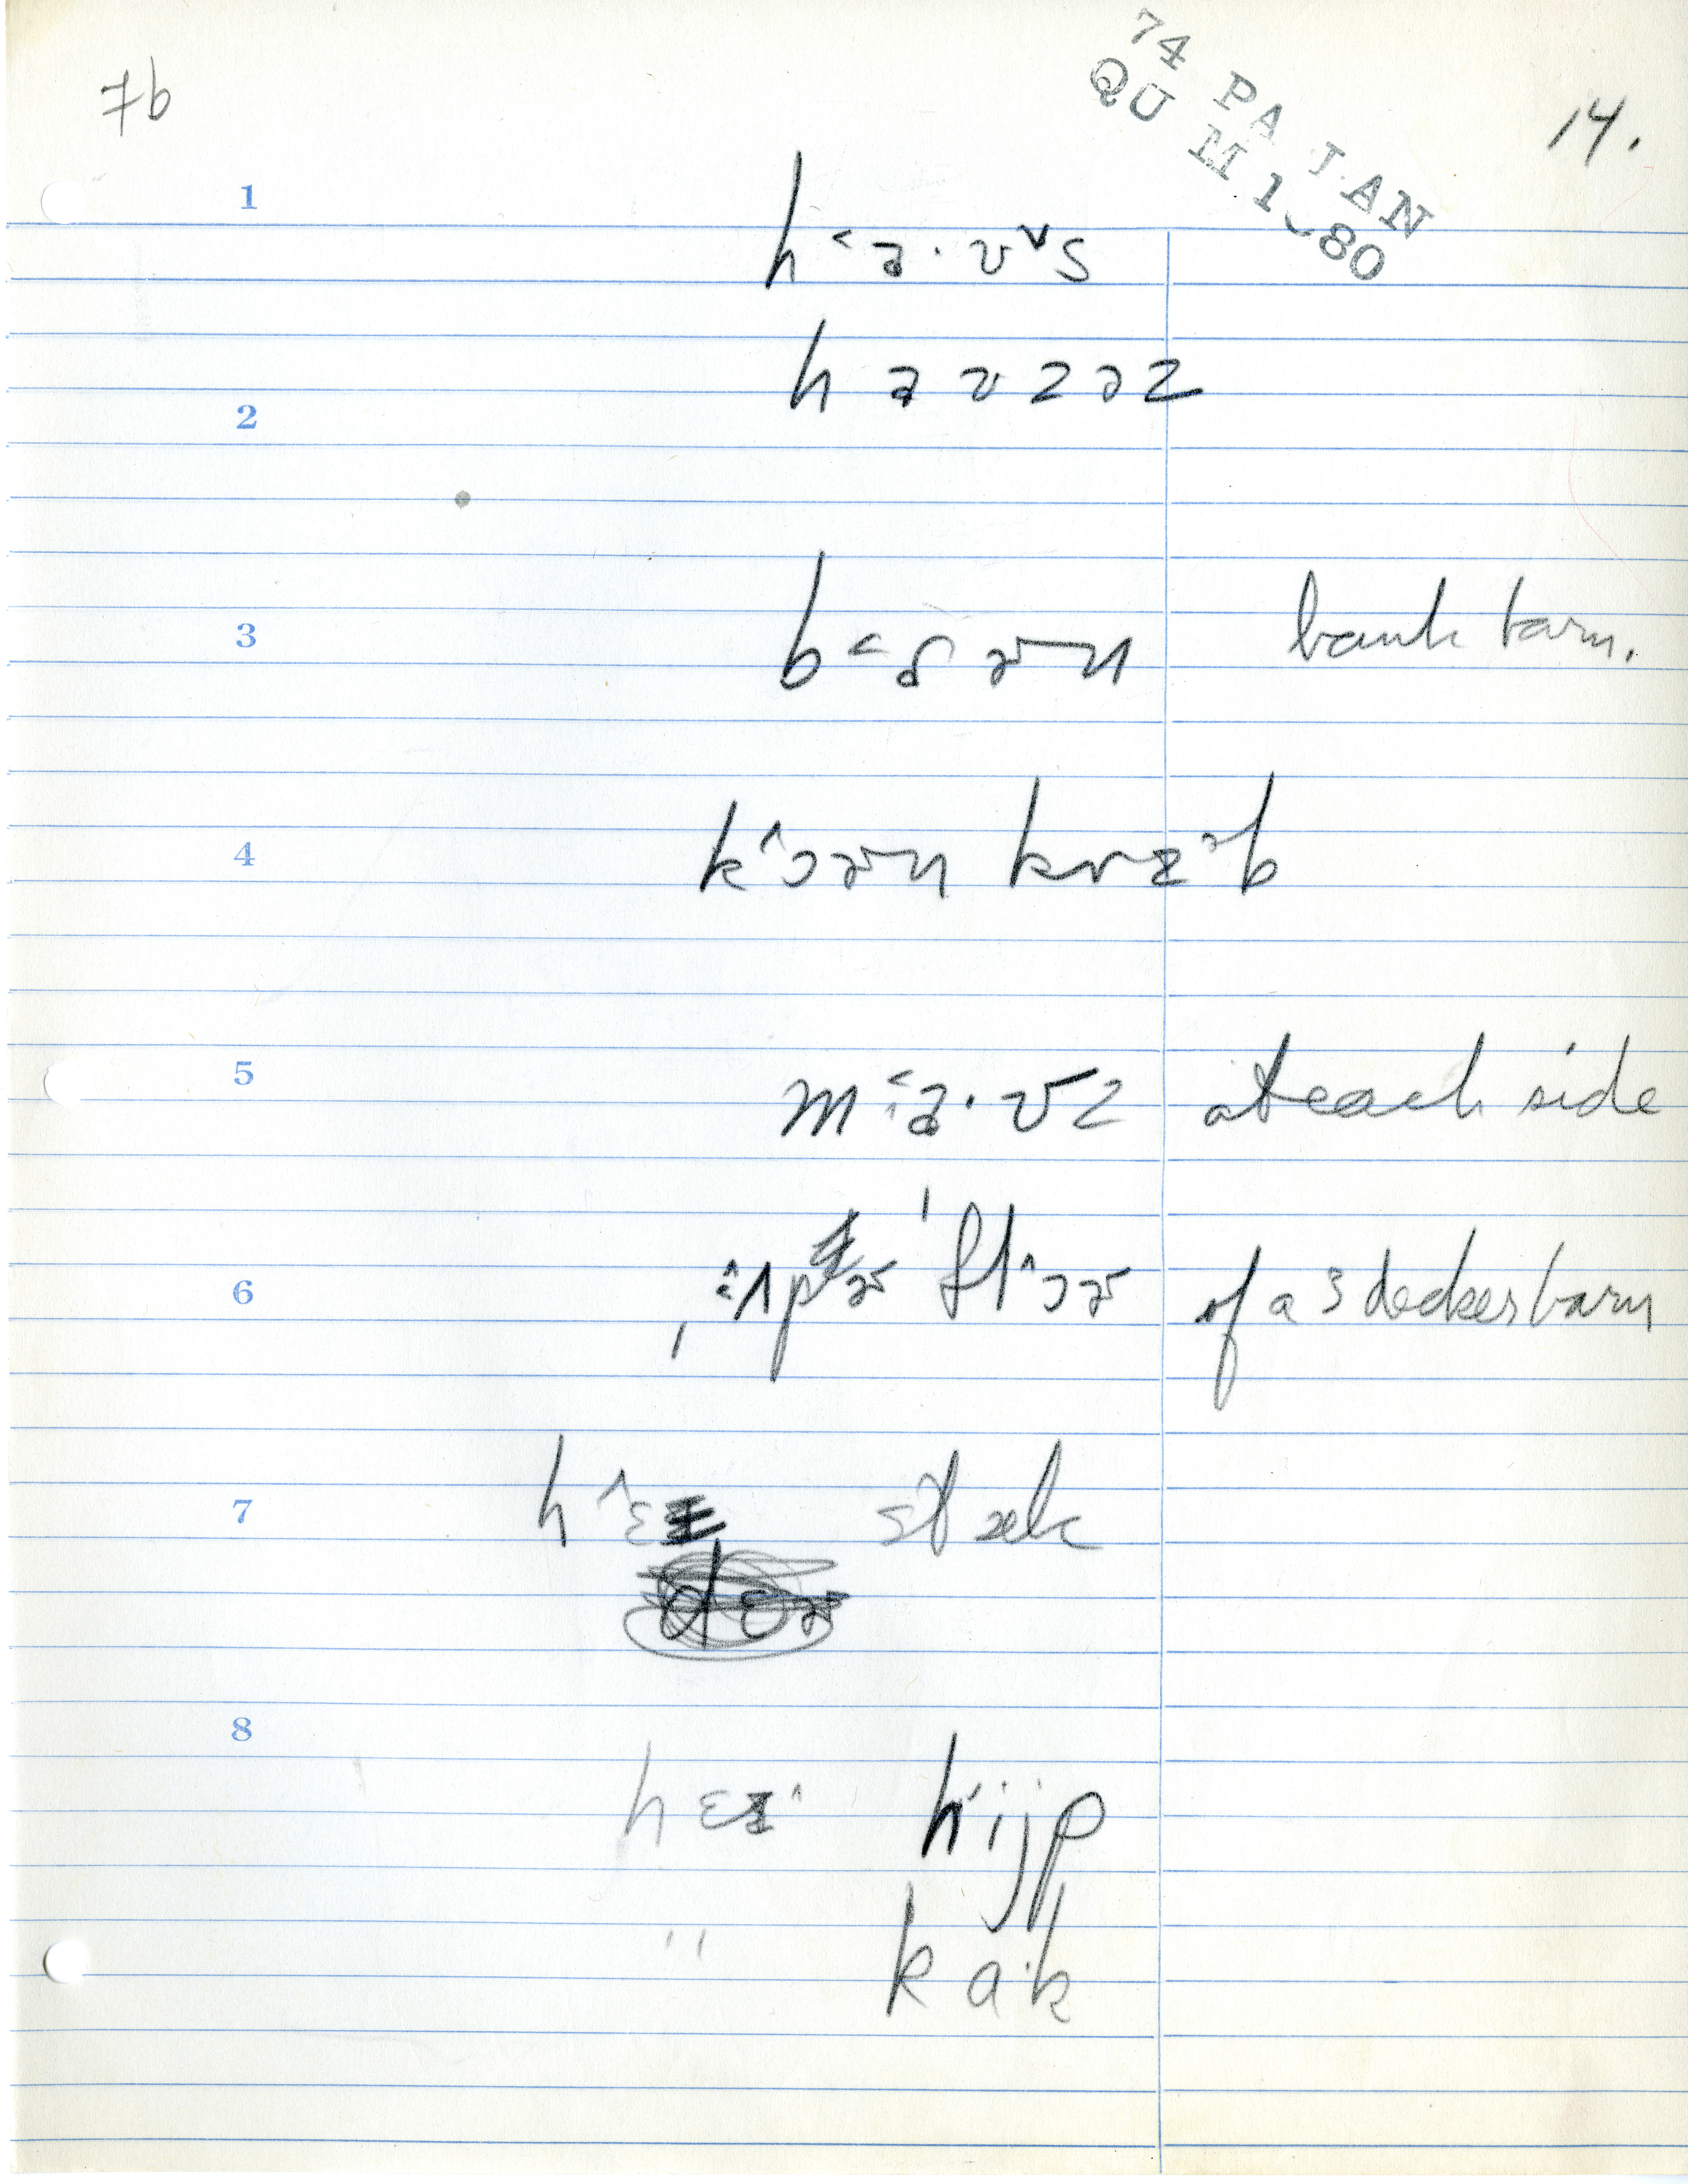 74 PA JAN
QU M 1 80
7b
14.
1
h˂a·ʊ˅s
haʊzəz
2
3
b˂ɑɚn bank barn.
4
k˄ɔɚn krɪᵊb
5
m˂a·ʊz at each side
6
ˌʌpɚ ˈfl˄ɔɚ of a 3 decker barn
7
h˄ɛɪ stæk
8
hɛɪ˄ hijp
" kɑ·k